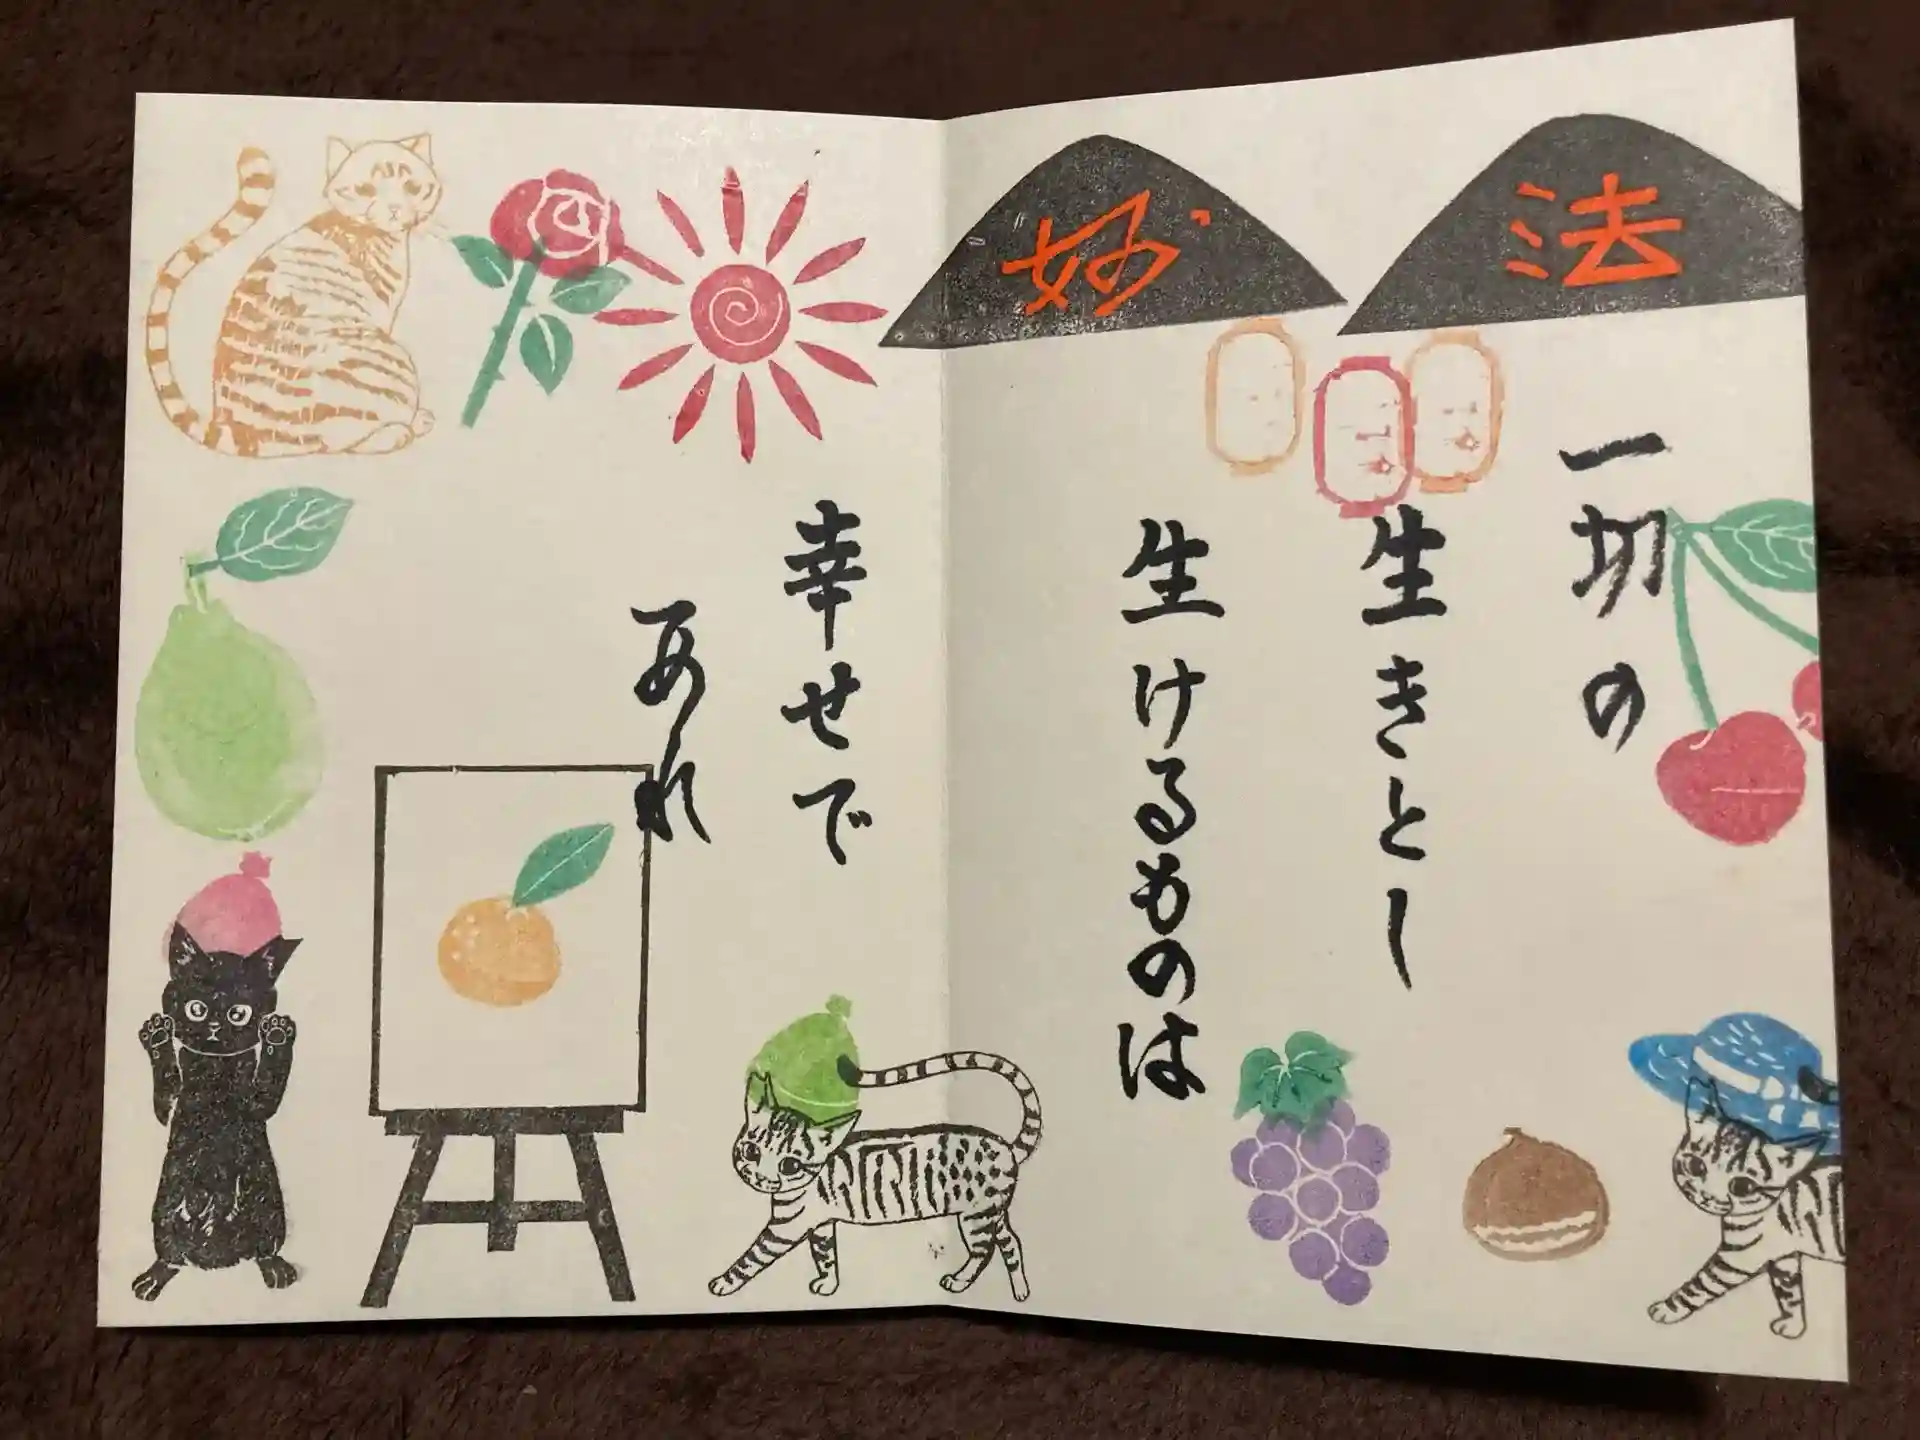 妙法
一切の
生きとし
生けるものは
幸せで
あれ